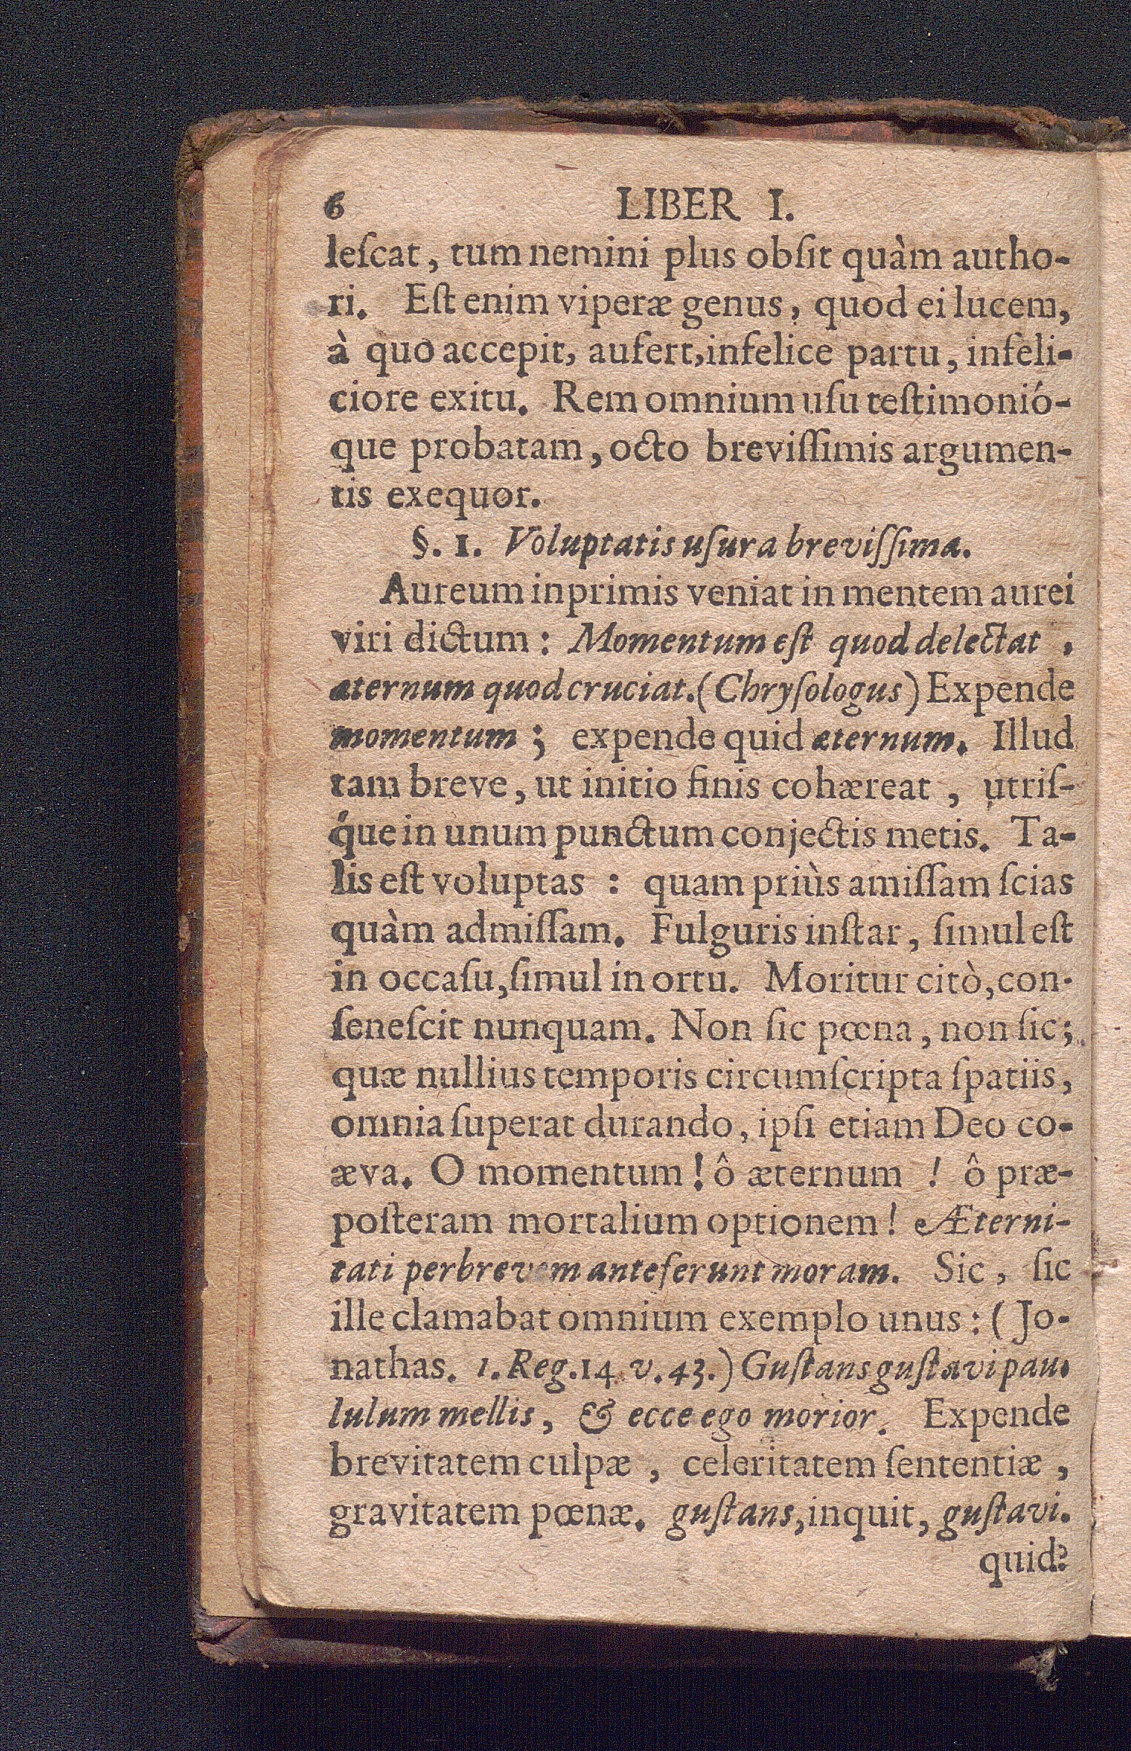 6 LIBER I.
leſcat, tum nemini plus obſit quàm autho-
ri. Eſt enim viperæ genus, quod ei lucem,
à quo accepit, aufert, infelice partu, infeli-
ciore exitu. Rem omnium uſu teſtimonió-
que probatam, octo breviſſimis argumen-
tis exequor.
§. 1. Voluptatis uſura breviſſima.
Aureum inprimis veniat in mentem aurei
viri dictum: Momentum eſt quod delectat,
æternum quod cruciat. (Chryſologus) Expende
momentum; expende quid æternum. Illud
tam breve, ut initio finis cohæreat, utriſ-
q́ue in unum punctum conjectis metis. Ta-
lis eſt voluptas: quam priùs amiſſam ſcias
quàm admiſſam. Fulguris inſtar, ſimul eſt
in occaſu, ſimul in ortu. Moritur citò, con-
ſeneſcit nunquam. Non ſic pœna, non ſic;
quæ nullius temporis circumſcripta ſpatiis,
omnia ſuperat durando, ipſi etiam Deo co-
æva. O momentum! ô æternum! ô præ-
poſteram mortalium optionem! Æterni-
tati perbrevem anteferunt moram. Sic, ſic
ille clamabat omnium exemplo unus: (Jo-
nathas. 1. Reg. 14. v. 43.) Guſtans guſtavi pau-
lulum mellis, & ecce ego morior. Expende
brevitatem culpæ, celeritatem ſententiæ,
gravitatem pœnæ. guſtans, inquit, guſtavi.
quid?